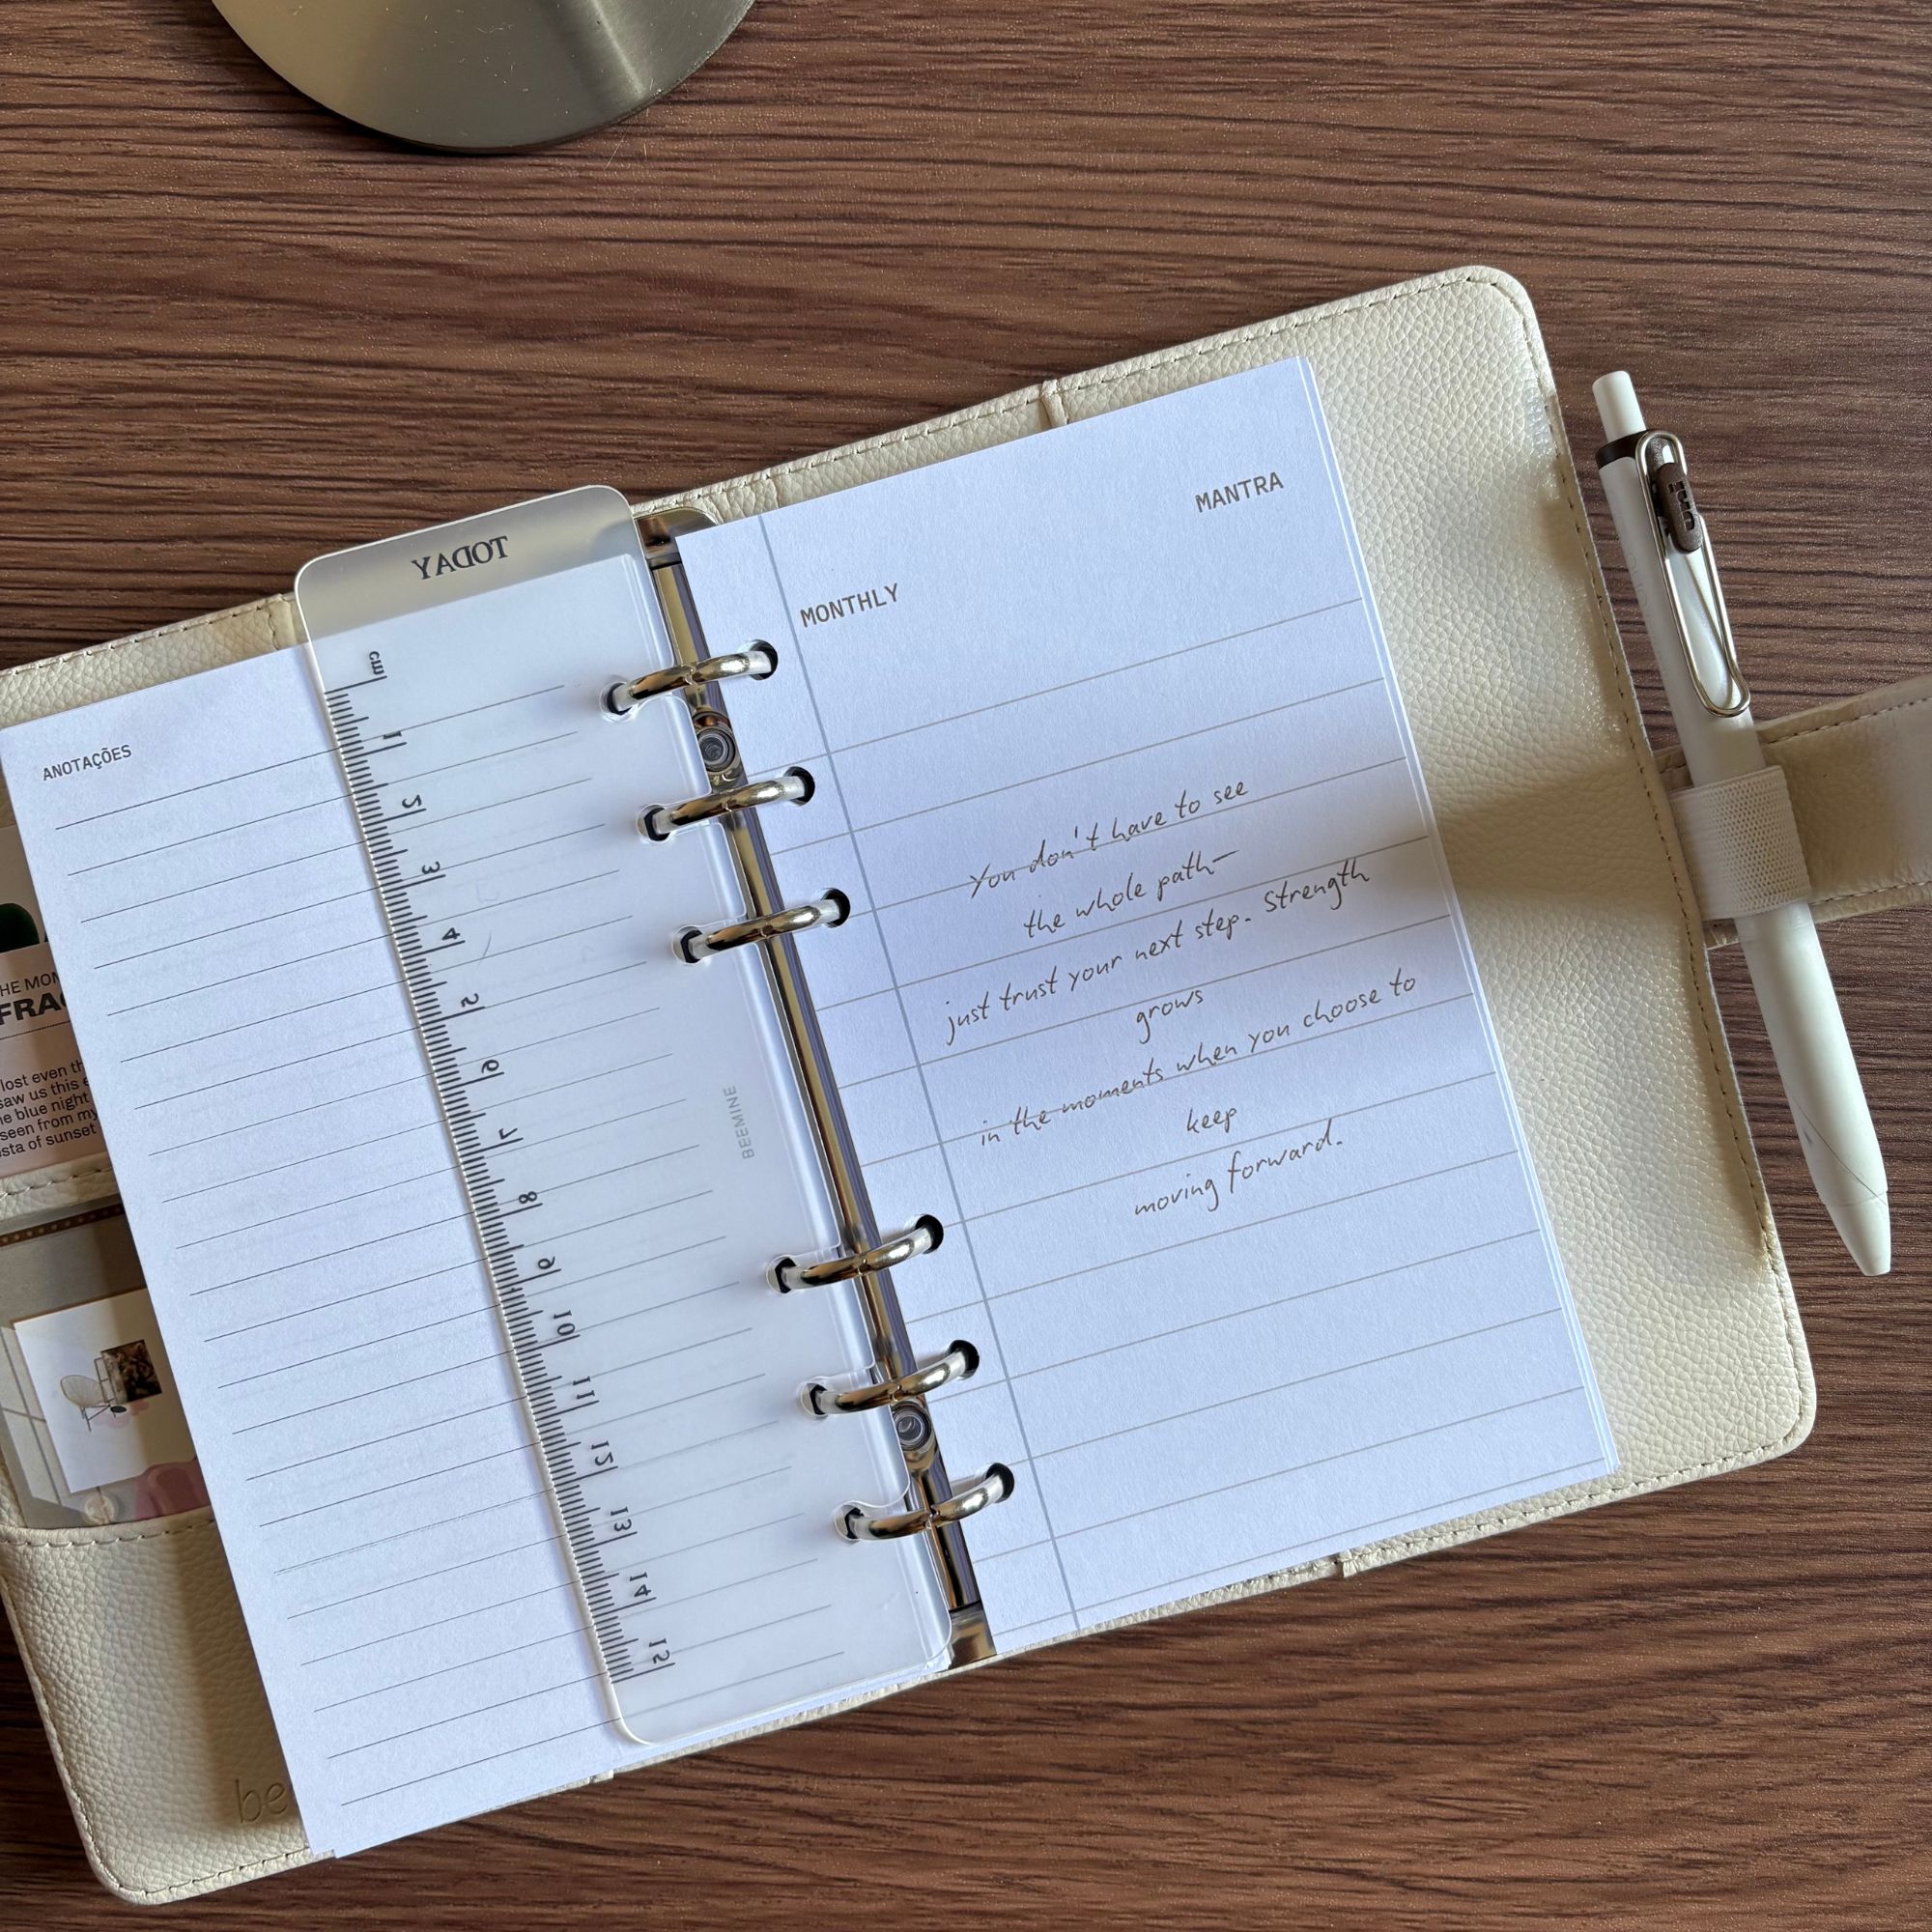 TODAY
cm
1
2
3
4
5
6
7
8
9
10
11
12
13
14
15
BEEMINE
ANOTAÇÕES
HE MON
FRAG
lost even th
saw us this e
e blue night
seen from my
sta of sunset
be
MANTRA
MONTHLY
You don't have to see
the whole path—
just trust your next step. Strength
grows
in the moments when you choose to
keep
moving forward.